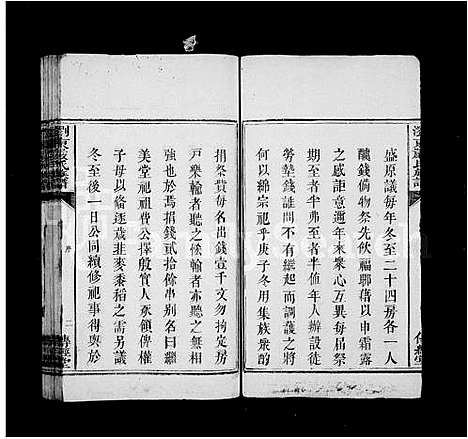 盛原議每年冬至二十四房各一人
醵錢備物祭先飲福聊藉以申霜露
之感詎意邇年來衆心互異每屆祭
期至者半弗至者半值年人辦設徒
勞墊錢誰問不有繼起而調護之將
何以綿宗祀乎庚子冬用集族衆酌
捐祭費每名出錢壹千文勿拘定房
戶樂輸者聽之俟輸者亦聽之不相
強也於焉捐錢貳拾餘串名曰繼
美堂祀祖費公擇殷實人承領俾權
子母以脩逐歲韭麥黍稻之需另議
冬至後一日公同續修祀事得與於
序